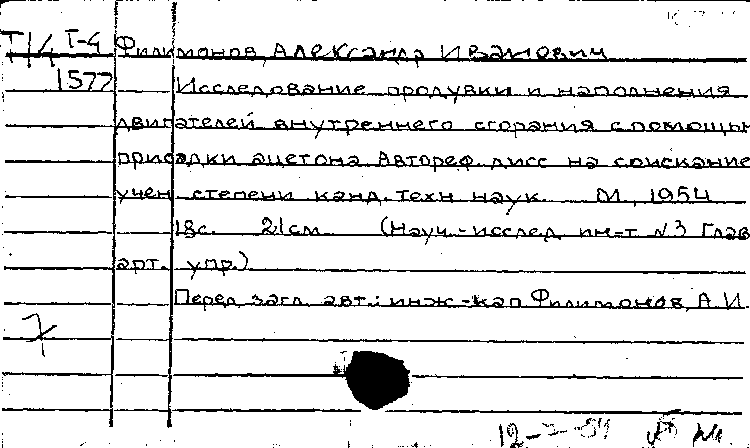 Т/4 Т-4 Филимонов, Александр Иванович
1577 Исследование продувки и наполнения
двигателей внутреннего сгорания с помощью
присадки ацетона. Автореф. дисс. на соискание
учен. степени канд. техн. наук. М., 1954
18с. 21см. (Науч.-исслед. ин-т №3 Глав.
арт. упр.)
Перед загл. авт.: инж.-кап. Филимонов, А.И.